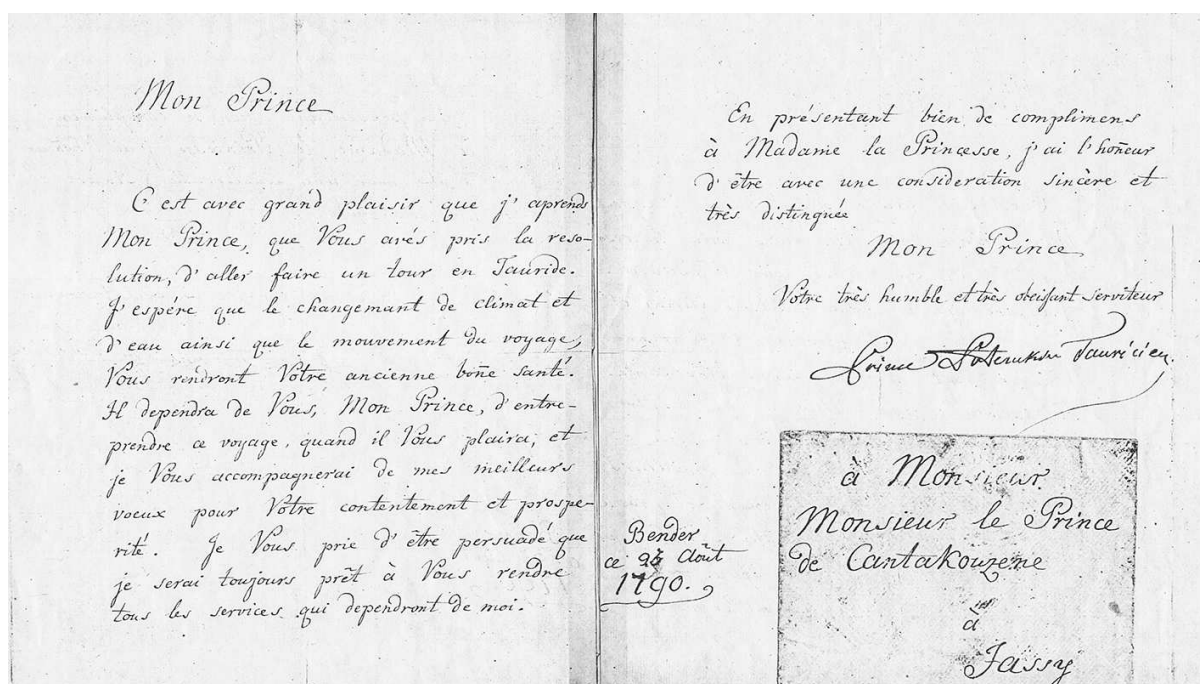 Mon Prince
C'est avec grand plaisir que j'aprends
Mon Prince, que Vous avés pris la reso-
lution, d'aller faire un tour en Tauride.
J'espére que le changemant de climat et
d'eau ainsi que le mouvement du voyage,
Vous rendront Votre ancienne bon̄e santé.
Il dependra de Vous, Mon Prince, d'entre-
prendre ce voyage, quand il Vous plaira, et
je Vous accompagnerai de mes meilleurs
voeux pour Votre contentement et prospe-
rité. Je Vous prie d'être persuadé que
je serai toujours prêt à Vous rendre
tous les services qui dependront de moi.
En présentant bien de complimens
à Madame la Princesse, j'ai l'hon̄eur
d'être avec une consideration sincère et
très distinguée
Mon Prince
Votre très humble et très obeisſant serviteur
Prince Potemkin Tauricien
Bender
ce Août
1790.
à Monsieur
Monsieur le Prince
de Cantakouzene
à
Jassy